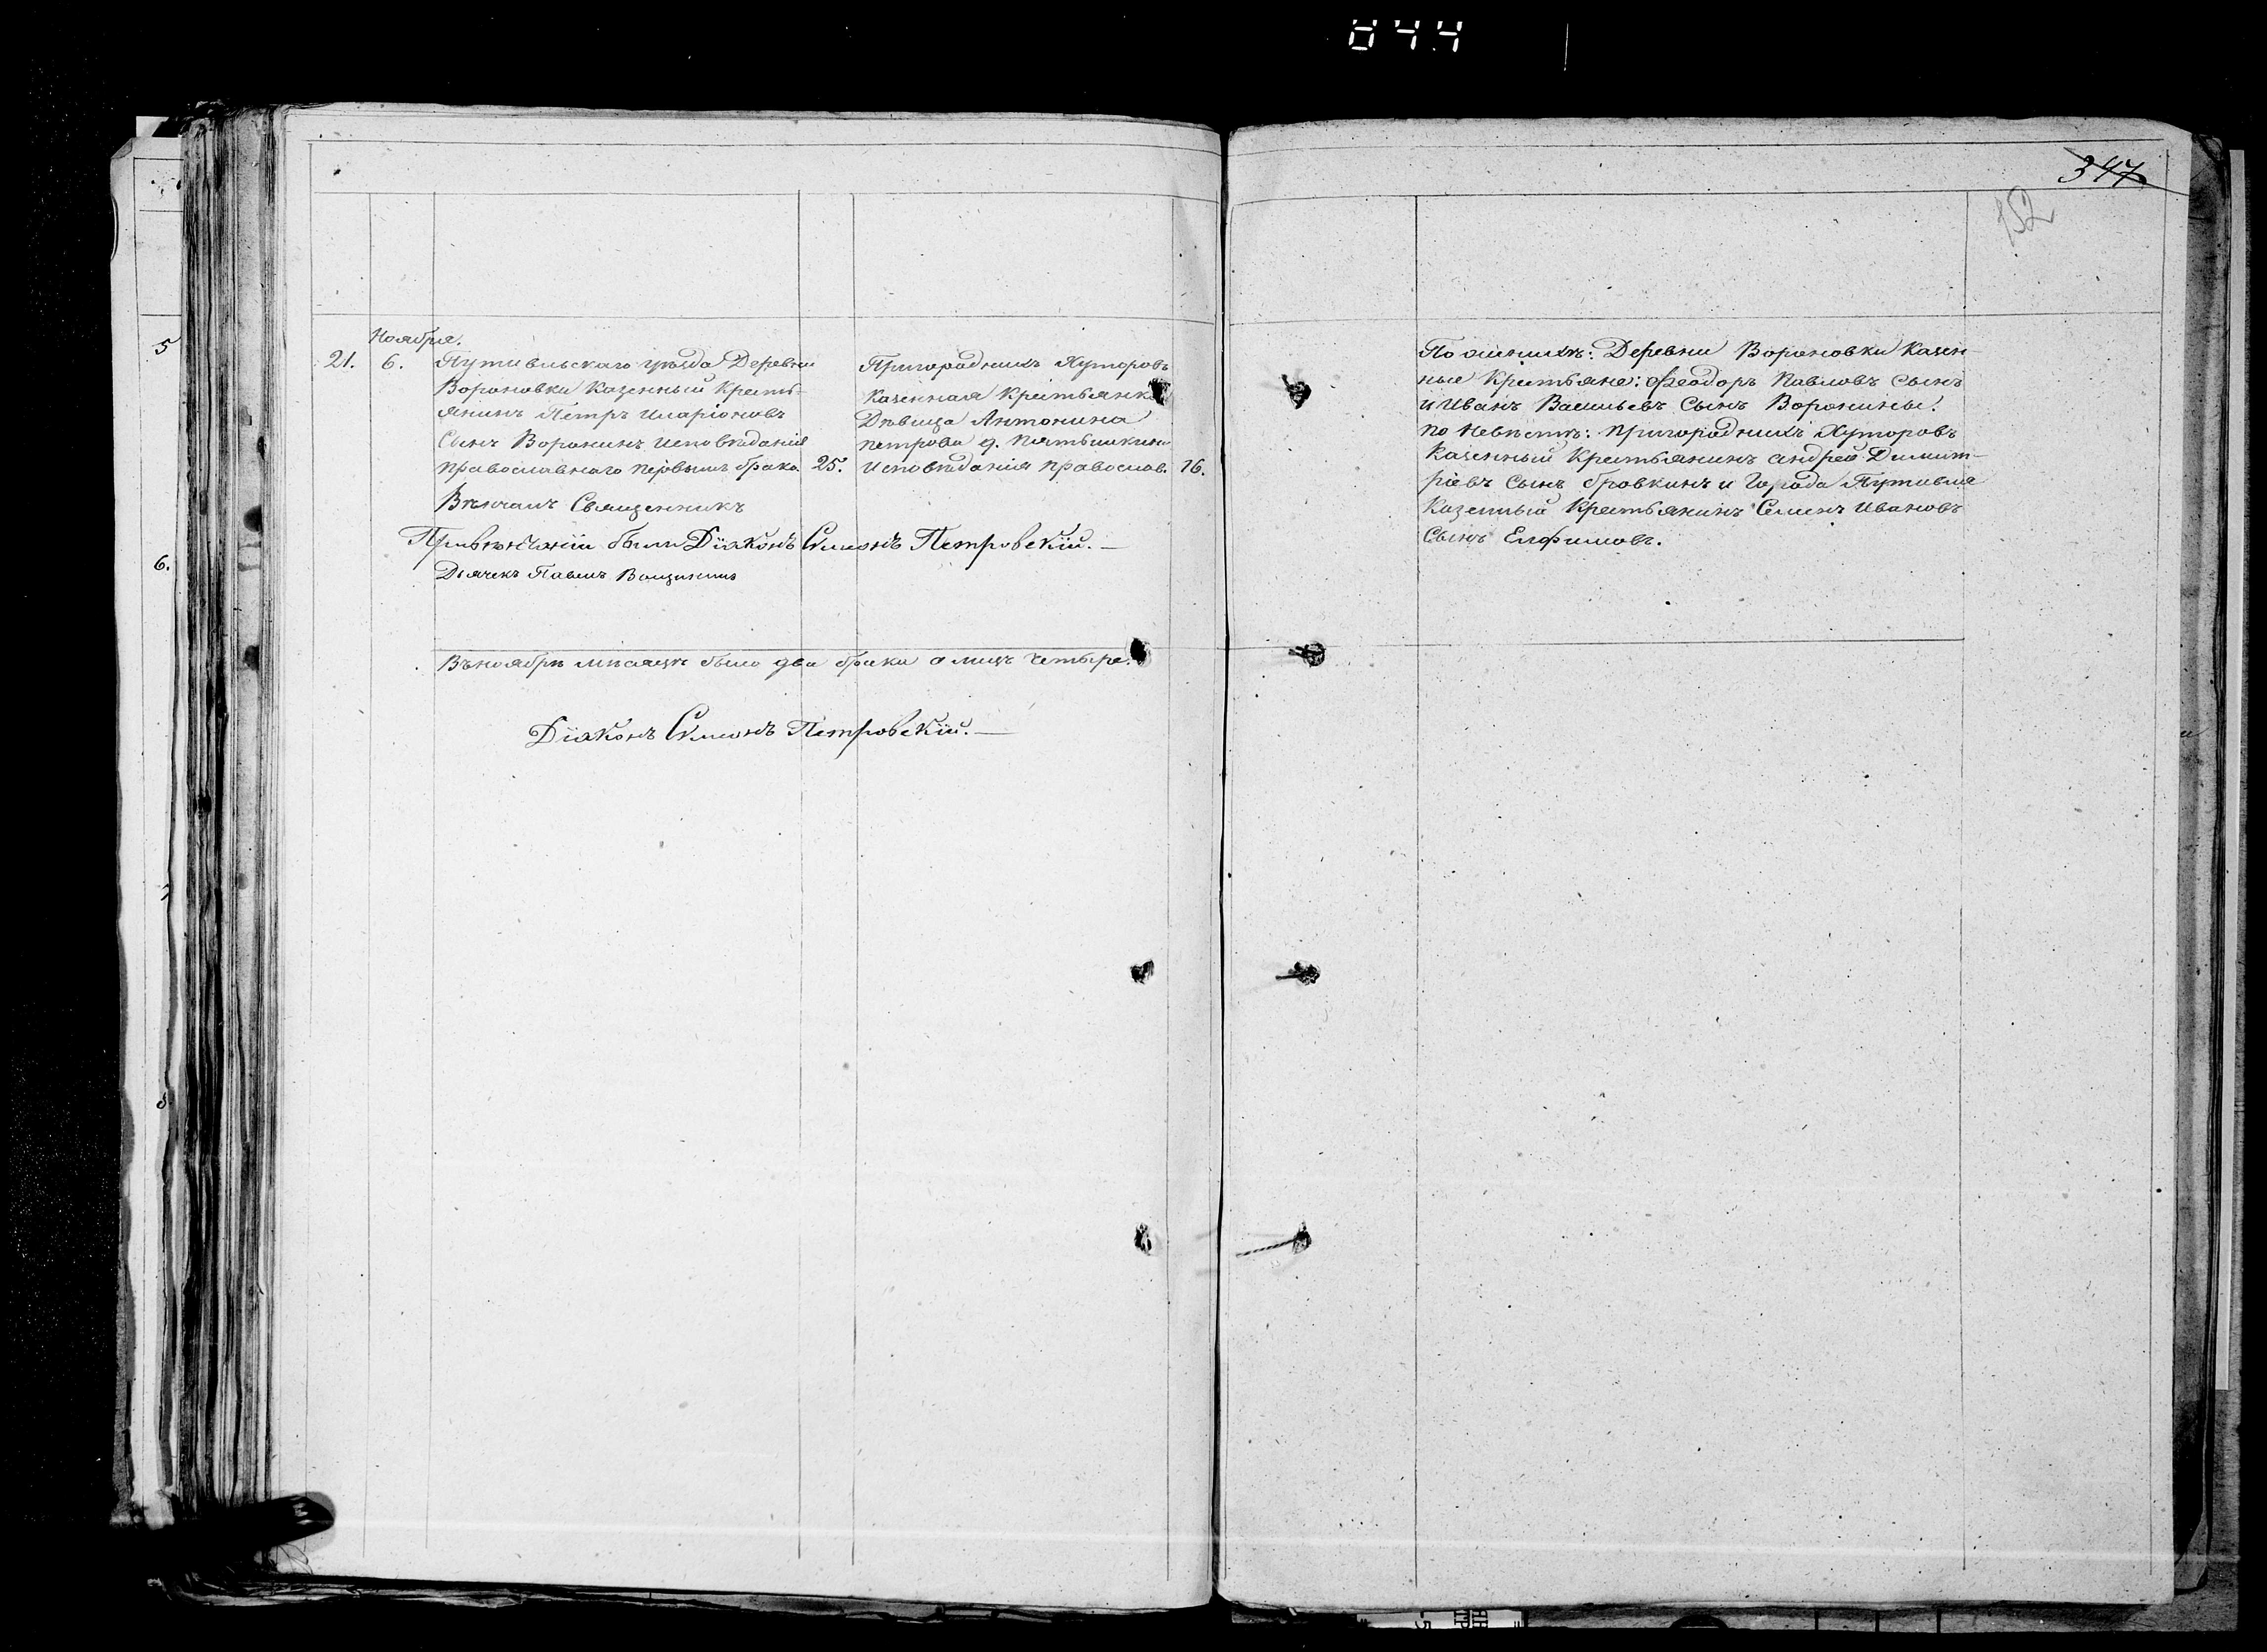 044
347
152
Ноября.
21. 6. Путивльскаго уѣзда Деревни
Вороновки Казенный Кресть-
янинъ Петръ Иларіоновъ
Сынъ Воронинъ исповѣданія
православнаго первымъ брако. 25.
Пригородныхъ Хуторовъ
Казенная Крестьянка
Дѣвица Антонина
петрова д.
исповѣданія православ. 16.
Вѣнчалъ Священникъ
Привѣнчаніи были Діаконъ Симеонъ Петровскій. —
Дьячекъ Павелъ
Въноябрѣ мѣсяцѣ было два брака а лицъ четыре.
Діаконъ Симеонъ Петровскій. —
По женихѣ: Деревни Вороновки Казен-
ные Крестьяне: Феодоръ Павловъ Сынъ
и Иванъ Васильевъ Сынъ Воронины.
по Невѣстѣ: пригородныхъ Хуторовъ
Казенный Крестьянинъ андрей Димит-
ріевъ Сынъ бровкинъ и Города Путивля
Казенный Крестьянинъ Семенъ Ивановъ
Сынъ Елфимовъ.
5
6.
7
8